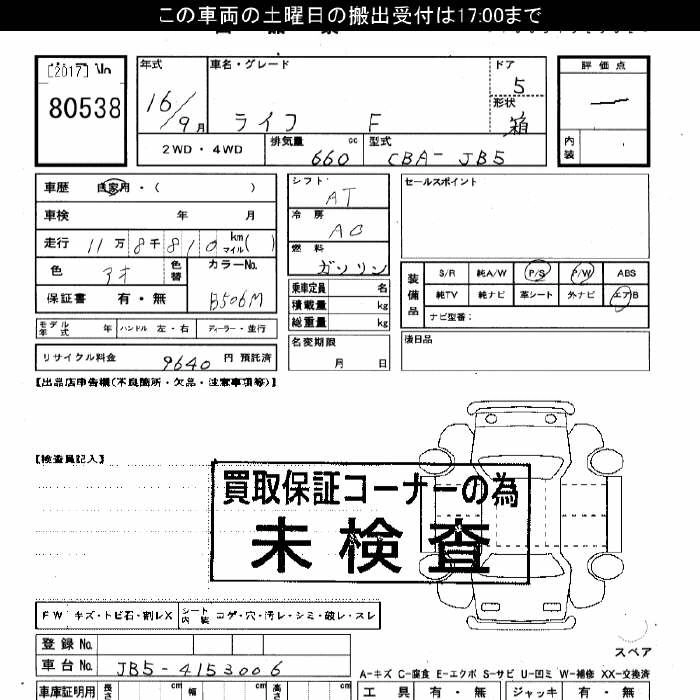 この車両の土曜日の搬出受付は17:00まで
[2017] No
80538
年式
16/9月
車名・グレード
ライフ F
ドア
5
形状
箱
評価点
内装
2WD・4WD
排気量 660 cc
型式 CBA-JB5
車歴 自家用・( )
車検 年 月
走行 11万8千810 km マイル( )
色 アオ 色替
カラーNo. B506M
保証書 有・無
モデル年式 年 ハンドル 左・右 ディーラー・並行
リサイクル料金 9640 円 預託済
シフト AT
冷房 AC
燃料 ガソリン
乗車定員 名
積載量 kg
総重量 kg
名変期限 月 日
セールスポイント
装備品
S/R 純A/W P/S P/W ABS
純TV 純ナビ 革シート 外ナビ エアB
ナビ型番:
後日品
【出品店申告欄(不良箇所・欠品・注意事項等)】
【検査員記入】
買取保証コーナーの為
未検査
FW キズ・トビ石・割レX
シート内装 コゲ・穴・汚レ・シミ・破レ・スレ
登録No.
車台No. JB5-4153006
スペア
A-キズ C-腐食 E-エクボ S-サビ U-凹ミ W-補修 XX-交換済
車庫証明用 長さ cm 幅 cm 高さ cm
工具 有・無 ジャッキ 有・無